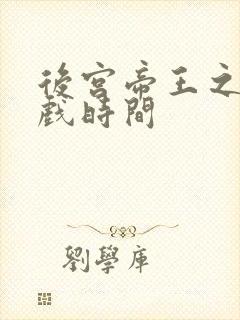 後宮帝王之
戲時間
劉學庫